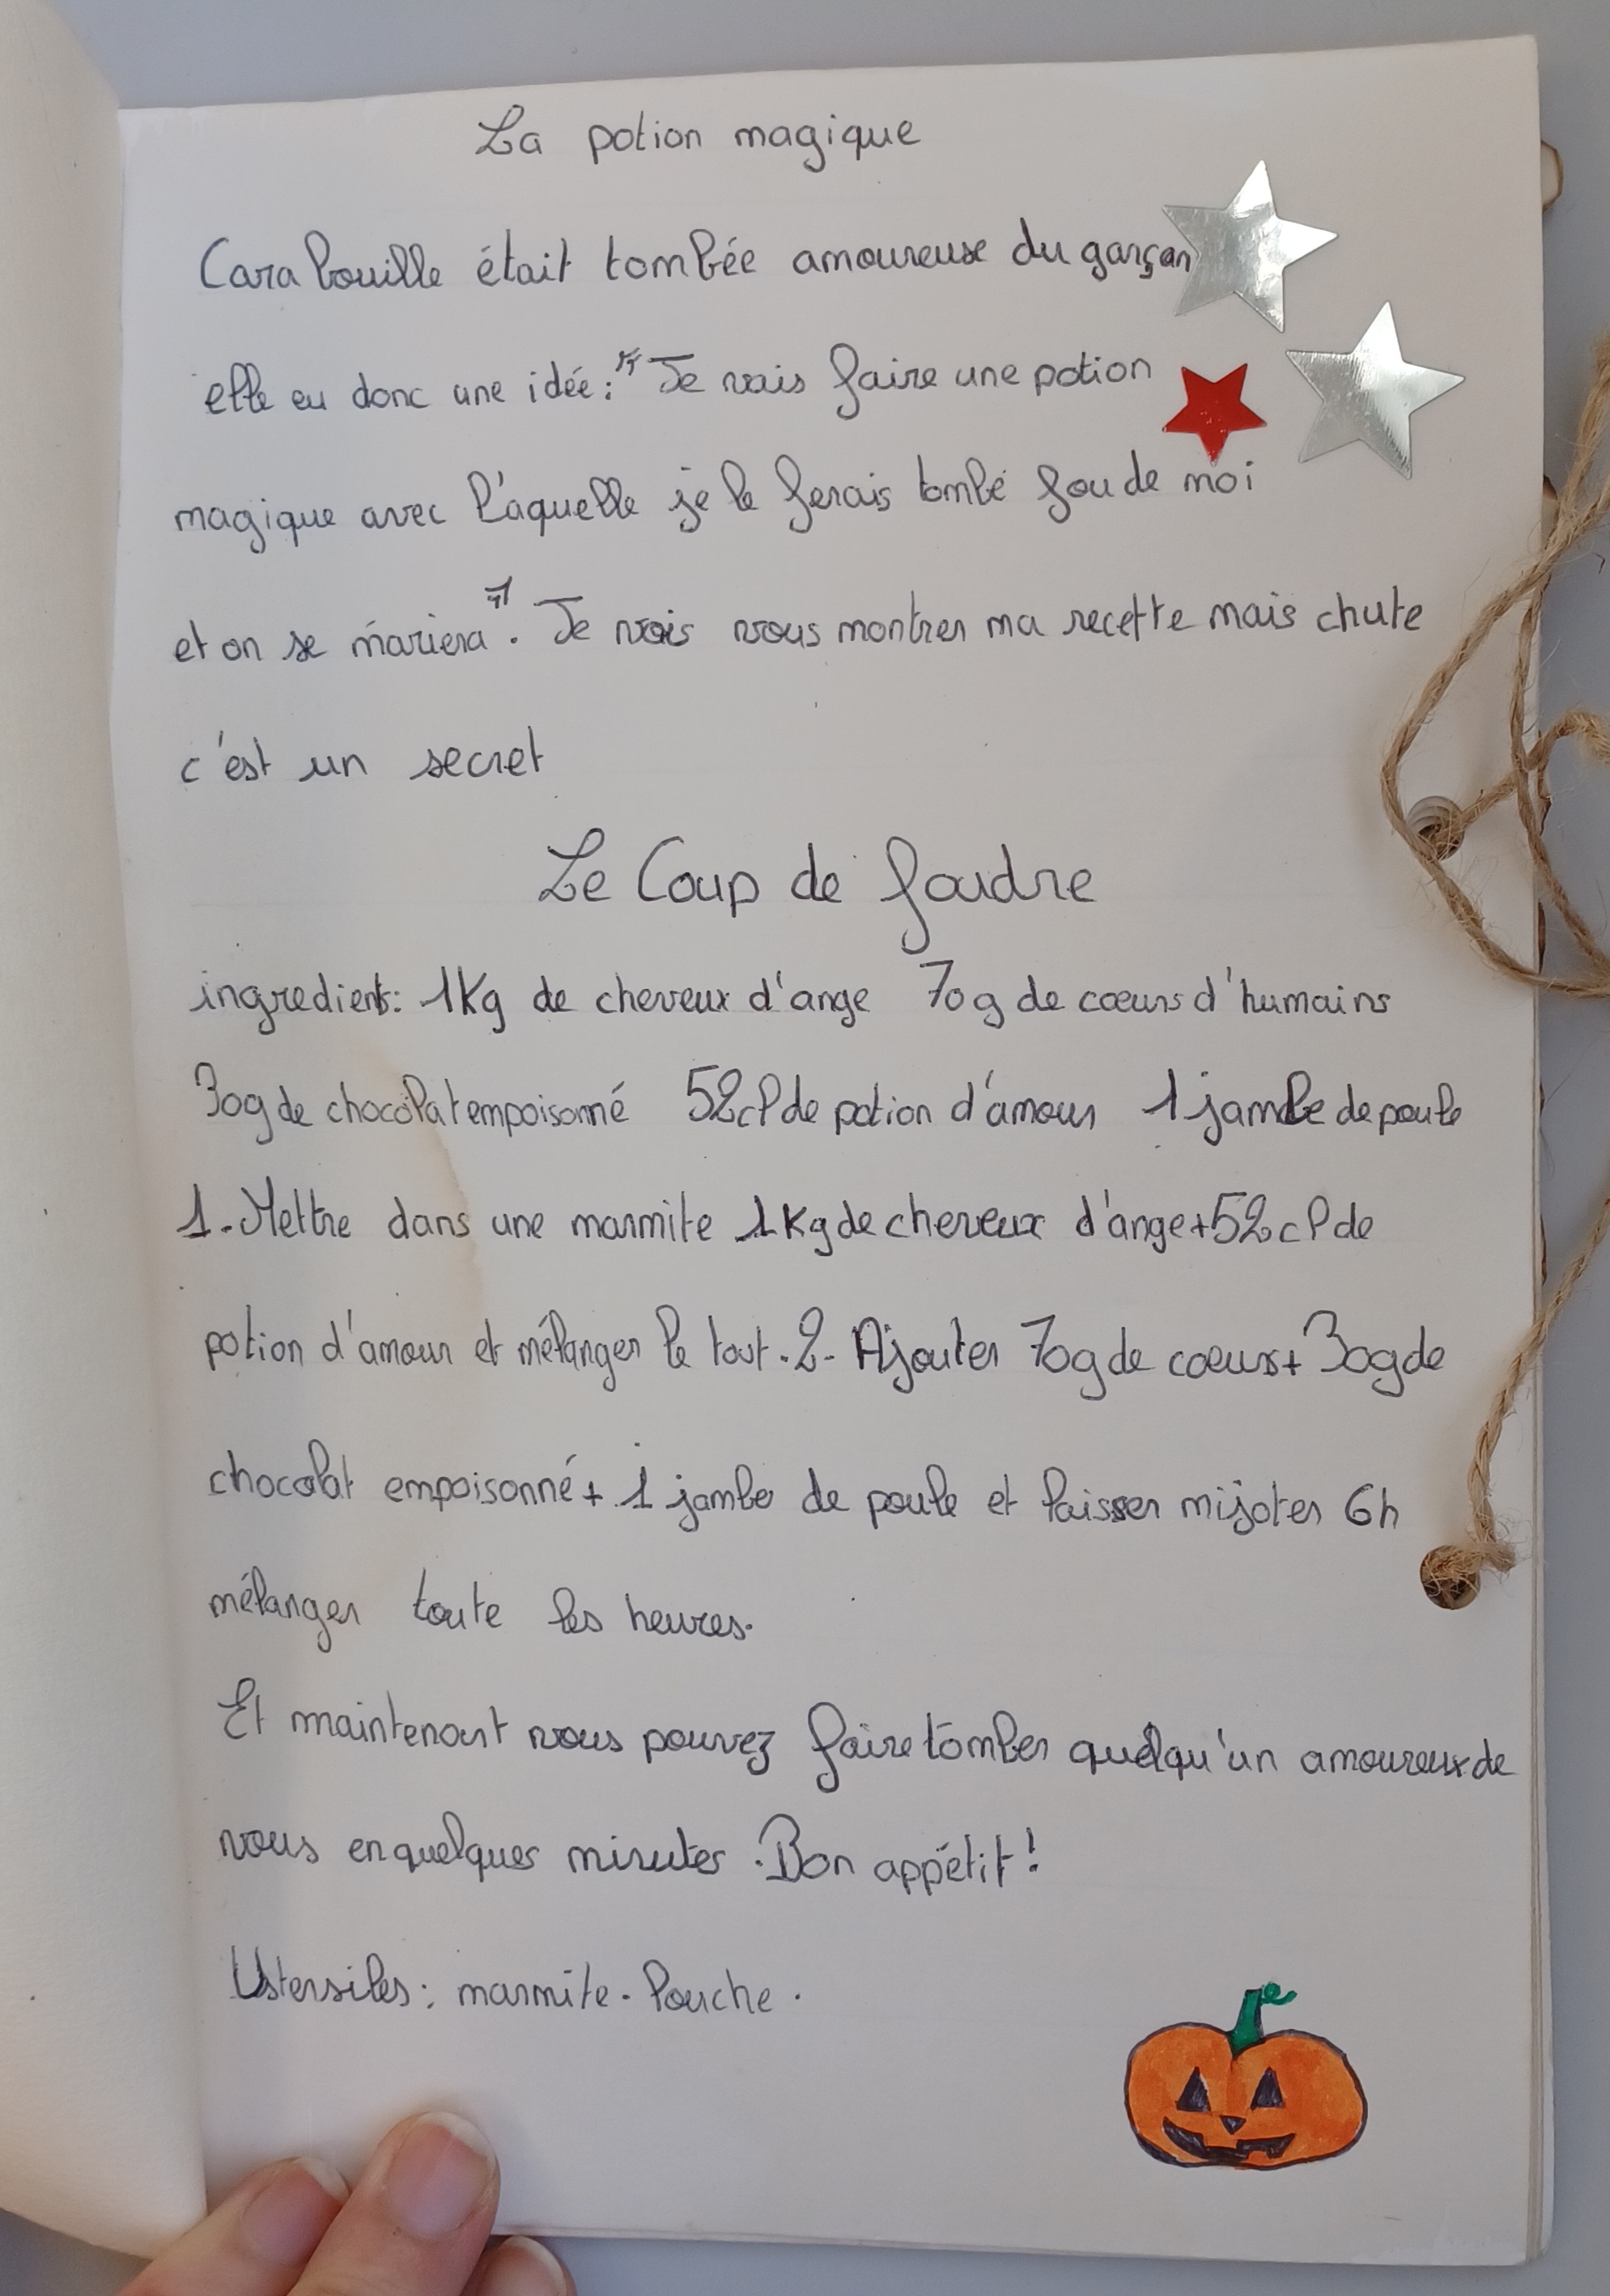 La potion magique
Carabouille était tombée amoureuse du garçon
elle eu donc une idée : " Je vais faire une potion
magique avec l'aquelle je le ferais tombé fou de moi
et on se mariera ". Je vais vous montrer ma recette mais chute
c'est un secret
Le Coup de foudre
ingredients: 1Kg de cheveux d'ange 70g de cœurs d'humains
30g de chocolat empoisonné 52cl de potion d'amour 1 jambe de poule
1.Mettre dans une marmite 1Kg de cheveux d'ange+52cl de
potion d'amour et mélanger le tout.2- Ajouter 70g de cœurs+30g de
chocolat empoisonné+ 1 jambe de poule et laisser mijoter 6h
mélanger toute les heures.
Et maintenant vous pouvez faire tomber quelqu'un amoureux de
vous en quelques minutes .Bon appétit!
Ustensiles: marmite. louche .